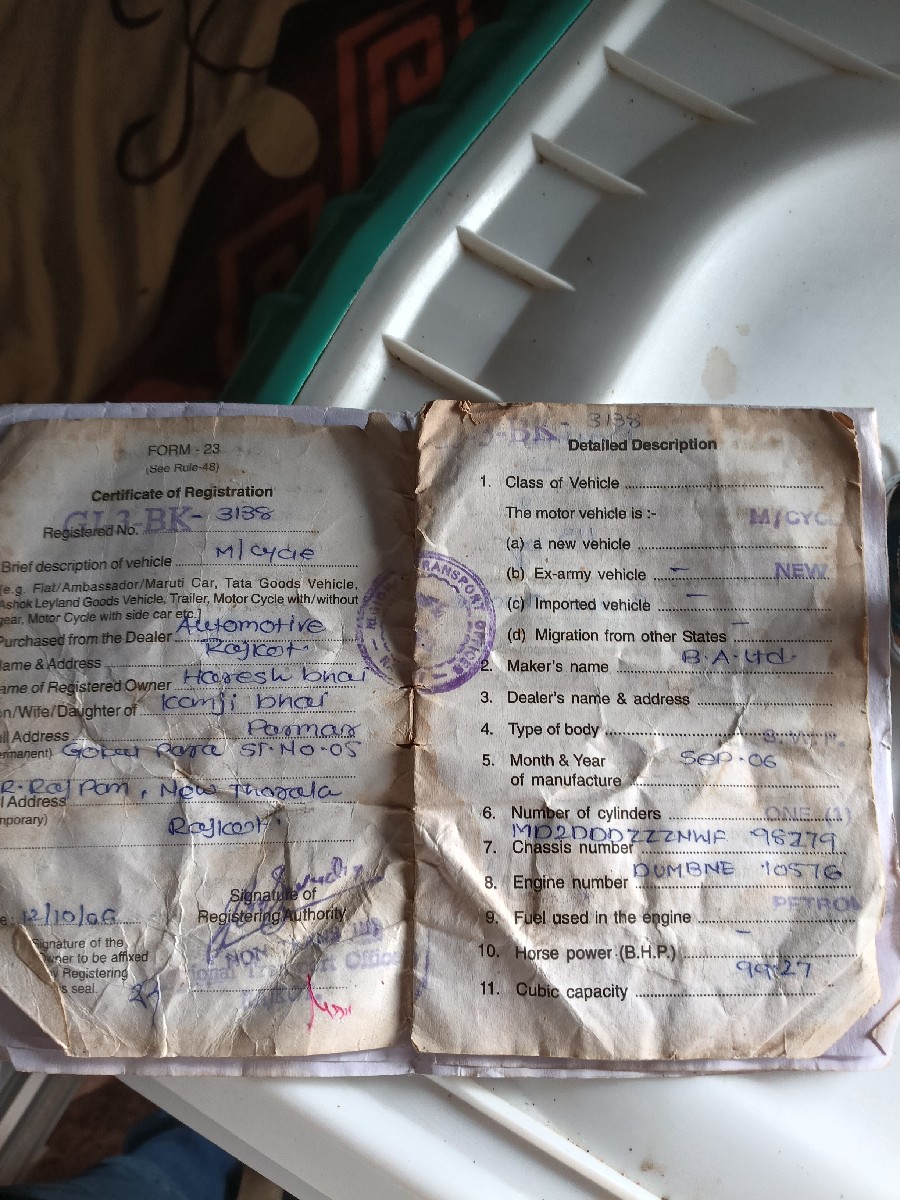 FORM - 23
(See Rule-48)
Certificate of Registration
Registered No. GJ-3-BK- 3138
Brief description of vehicle M/cycle
(e.g. Fiat/Ambassador/Maruti Car, Tata Goods Vehicle,
Ashok Leyland Goods Vehicle, Trailer, Motor Cycle with/without
gear, Motor Cycle with side car etc.)
Purchased from the Dealer Automotive
Rajkot.
ame & Address
ame of Registered Owner Haresh bhai
n/Wife/Daughter of kanji bhai
ll Address Parmar
rmanent) Gokul Para ST. No. 05
New Thorala
l Address
mporary)
Rajkot
Signature of
Registering Authority
e: 12/10/06
Signature of the
wner to be affixed
y Registering
s seal.
NON TRANS
ional Transport Office
REGIONAL TRANSPORT OFFICER
3138
Detailed Description
1. Class of Vehicle
The motor vehicle is :- M/CYC
(a) a new vehicle
(b) Ex-army vehicle - NEW
(c) Imported vehicle -
(d) Migration from other States -
2. Maker's name B.A.Ltd.
3. Dealer's name & address
4. Type of body
5. Month & Year SEP.06
of manufacture
6. Number of cylinders ONE (1)
7. Chassis number MD2DDDZZZNWF 98279
8. Engine number DUMBNE 10576
9. Fuel used in the engine PETROL
10. Horse power (B.H.P.) -
11. Cubic capacity 99.27